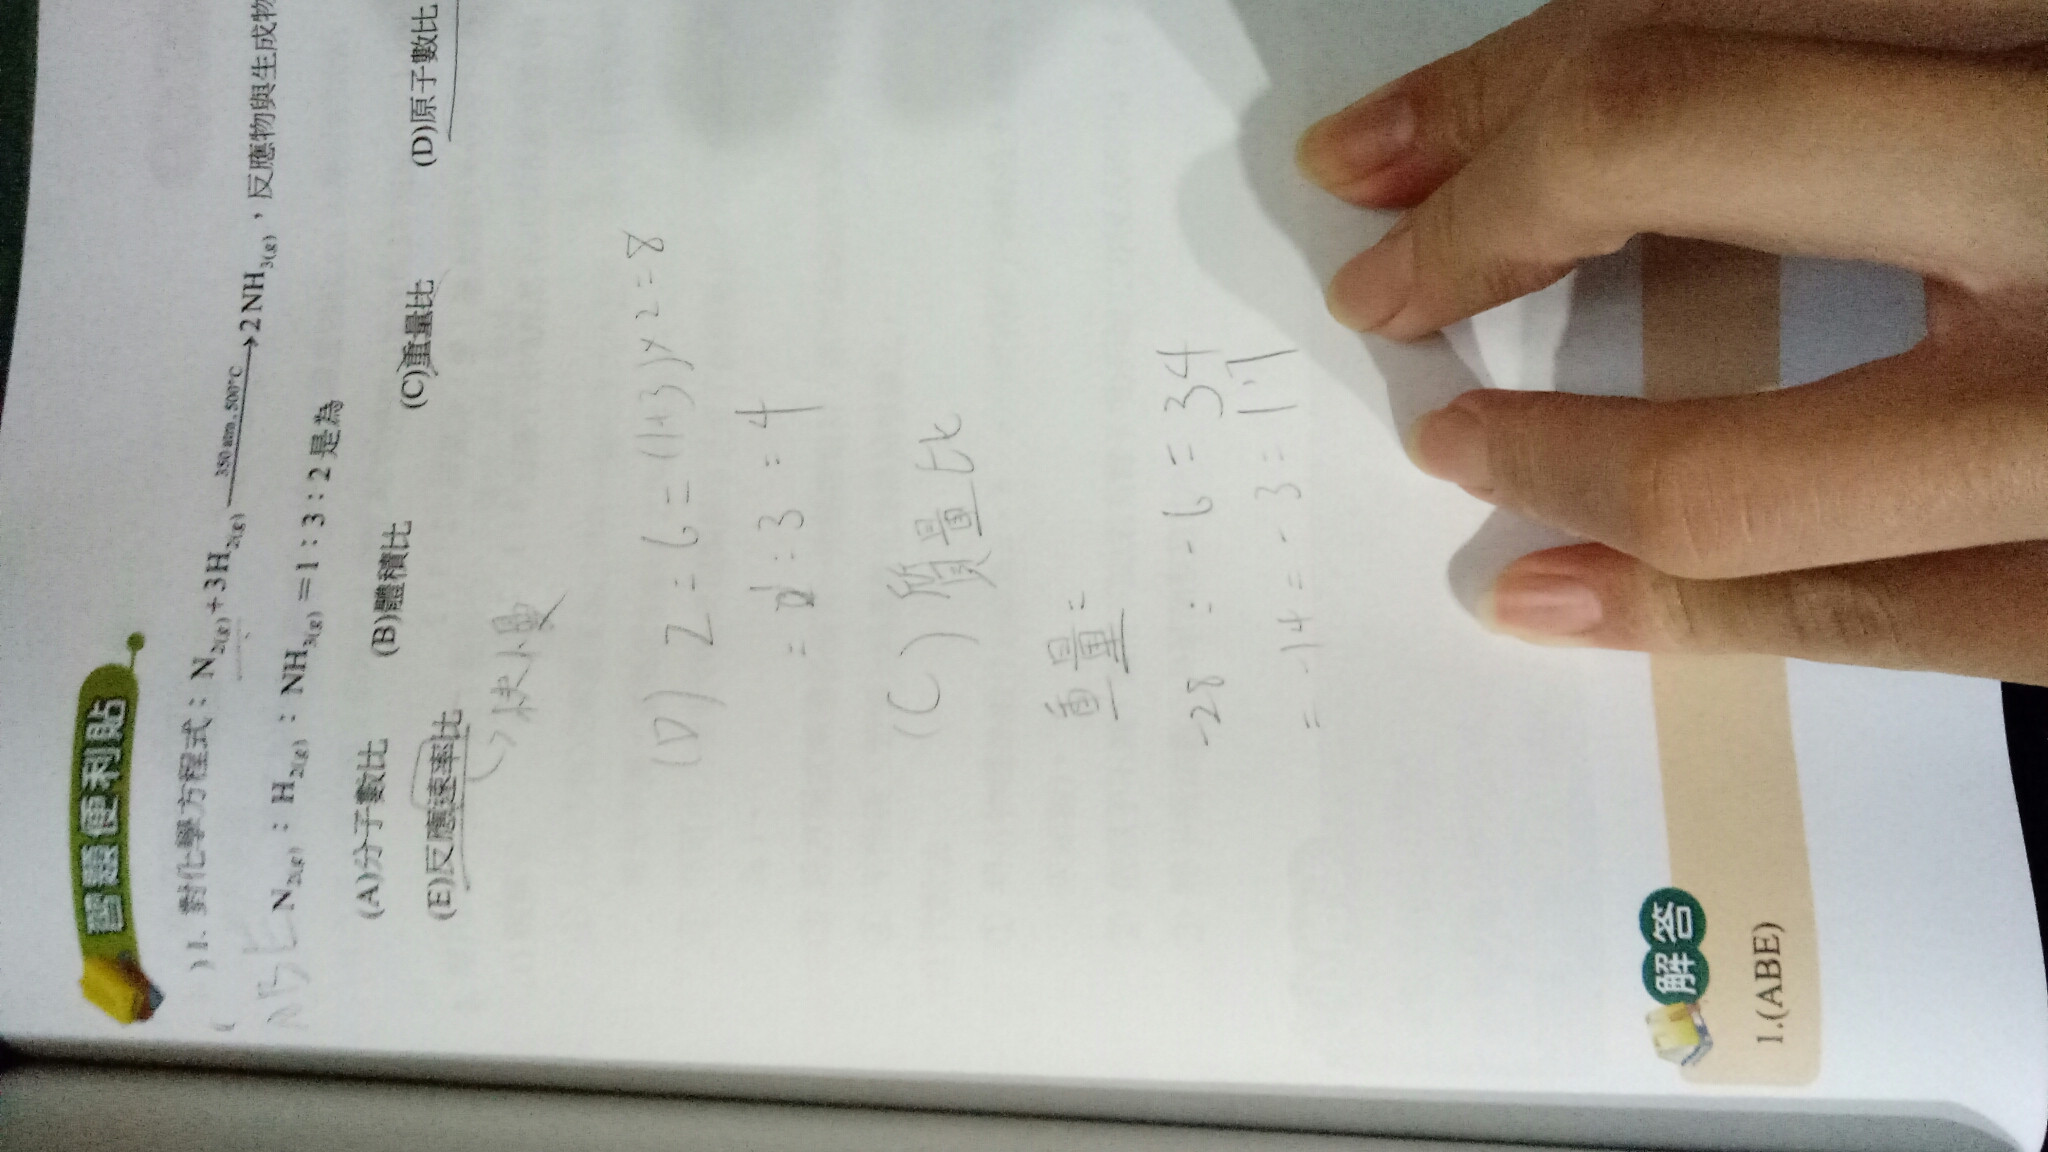 習題便利貼
( ) 1. 對化學方程式：N2(g)+3H2(g) 350 atm, 500°C→2NH3(g)，反應物與生成物
ABE
N2(g)：H2(g)：NH3(g)＝1：3：2是為
(A)分子數比 (B)體積比 (C)重量比 (D)原子數比
(E)反應速率比
↳快慢
(D) 2:6=(1+3)×2=8
=1:3:4
(C) 質量比
重量:
-28:-6=34
=-14=-3=17
解答
1.(ABE)